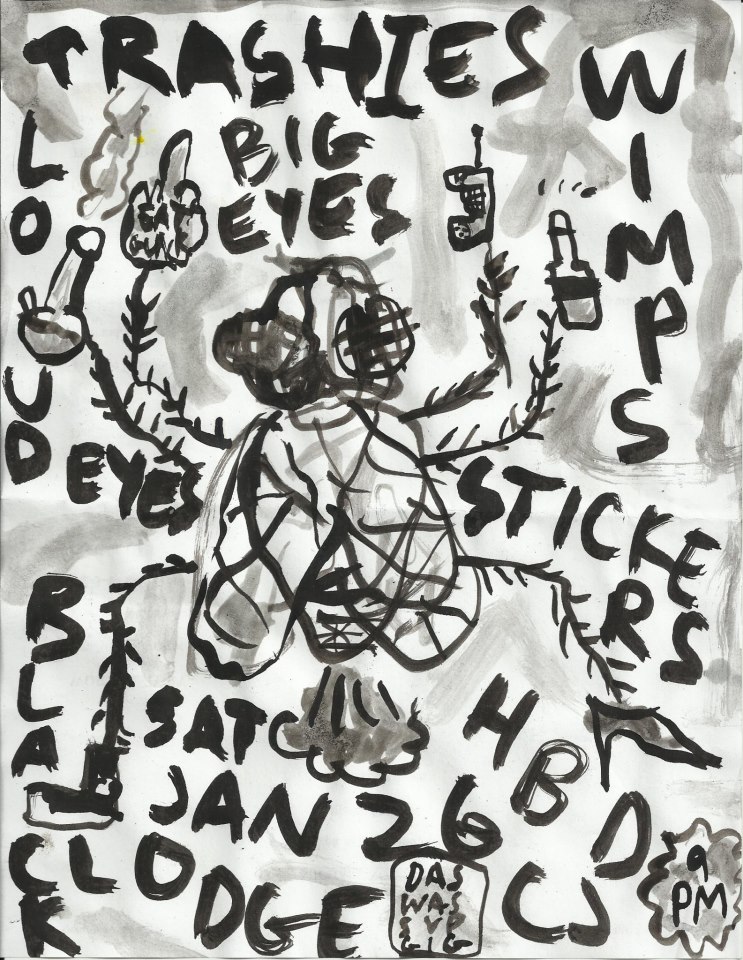 TRASHIES
WIMPS
BIG
EYES
LOUD
EYES
STICKERS
BLACK
LODGE
SAT
JAN 26
HBD
CJ
DAS
WAS
9
PM